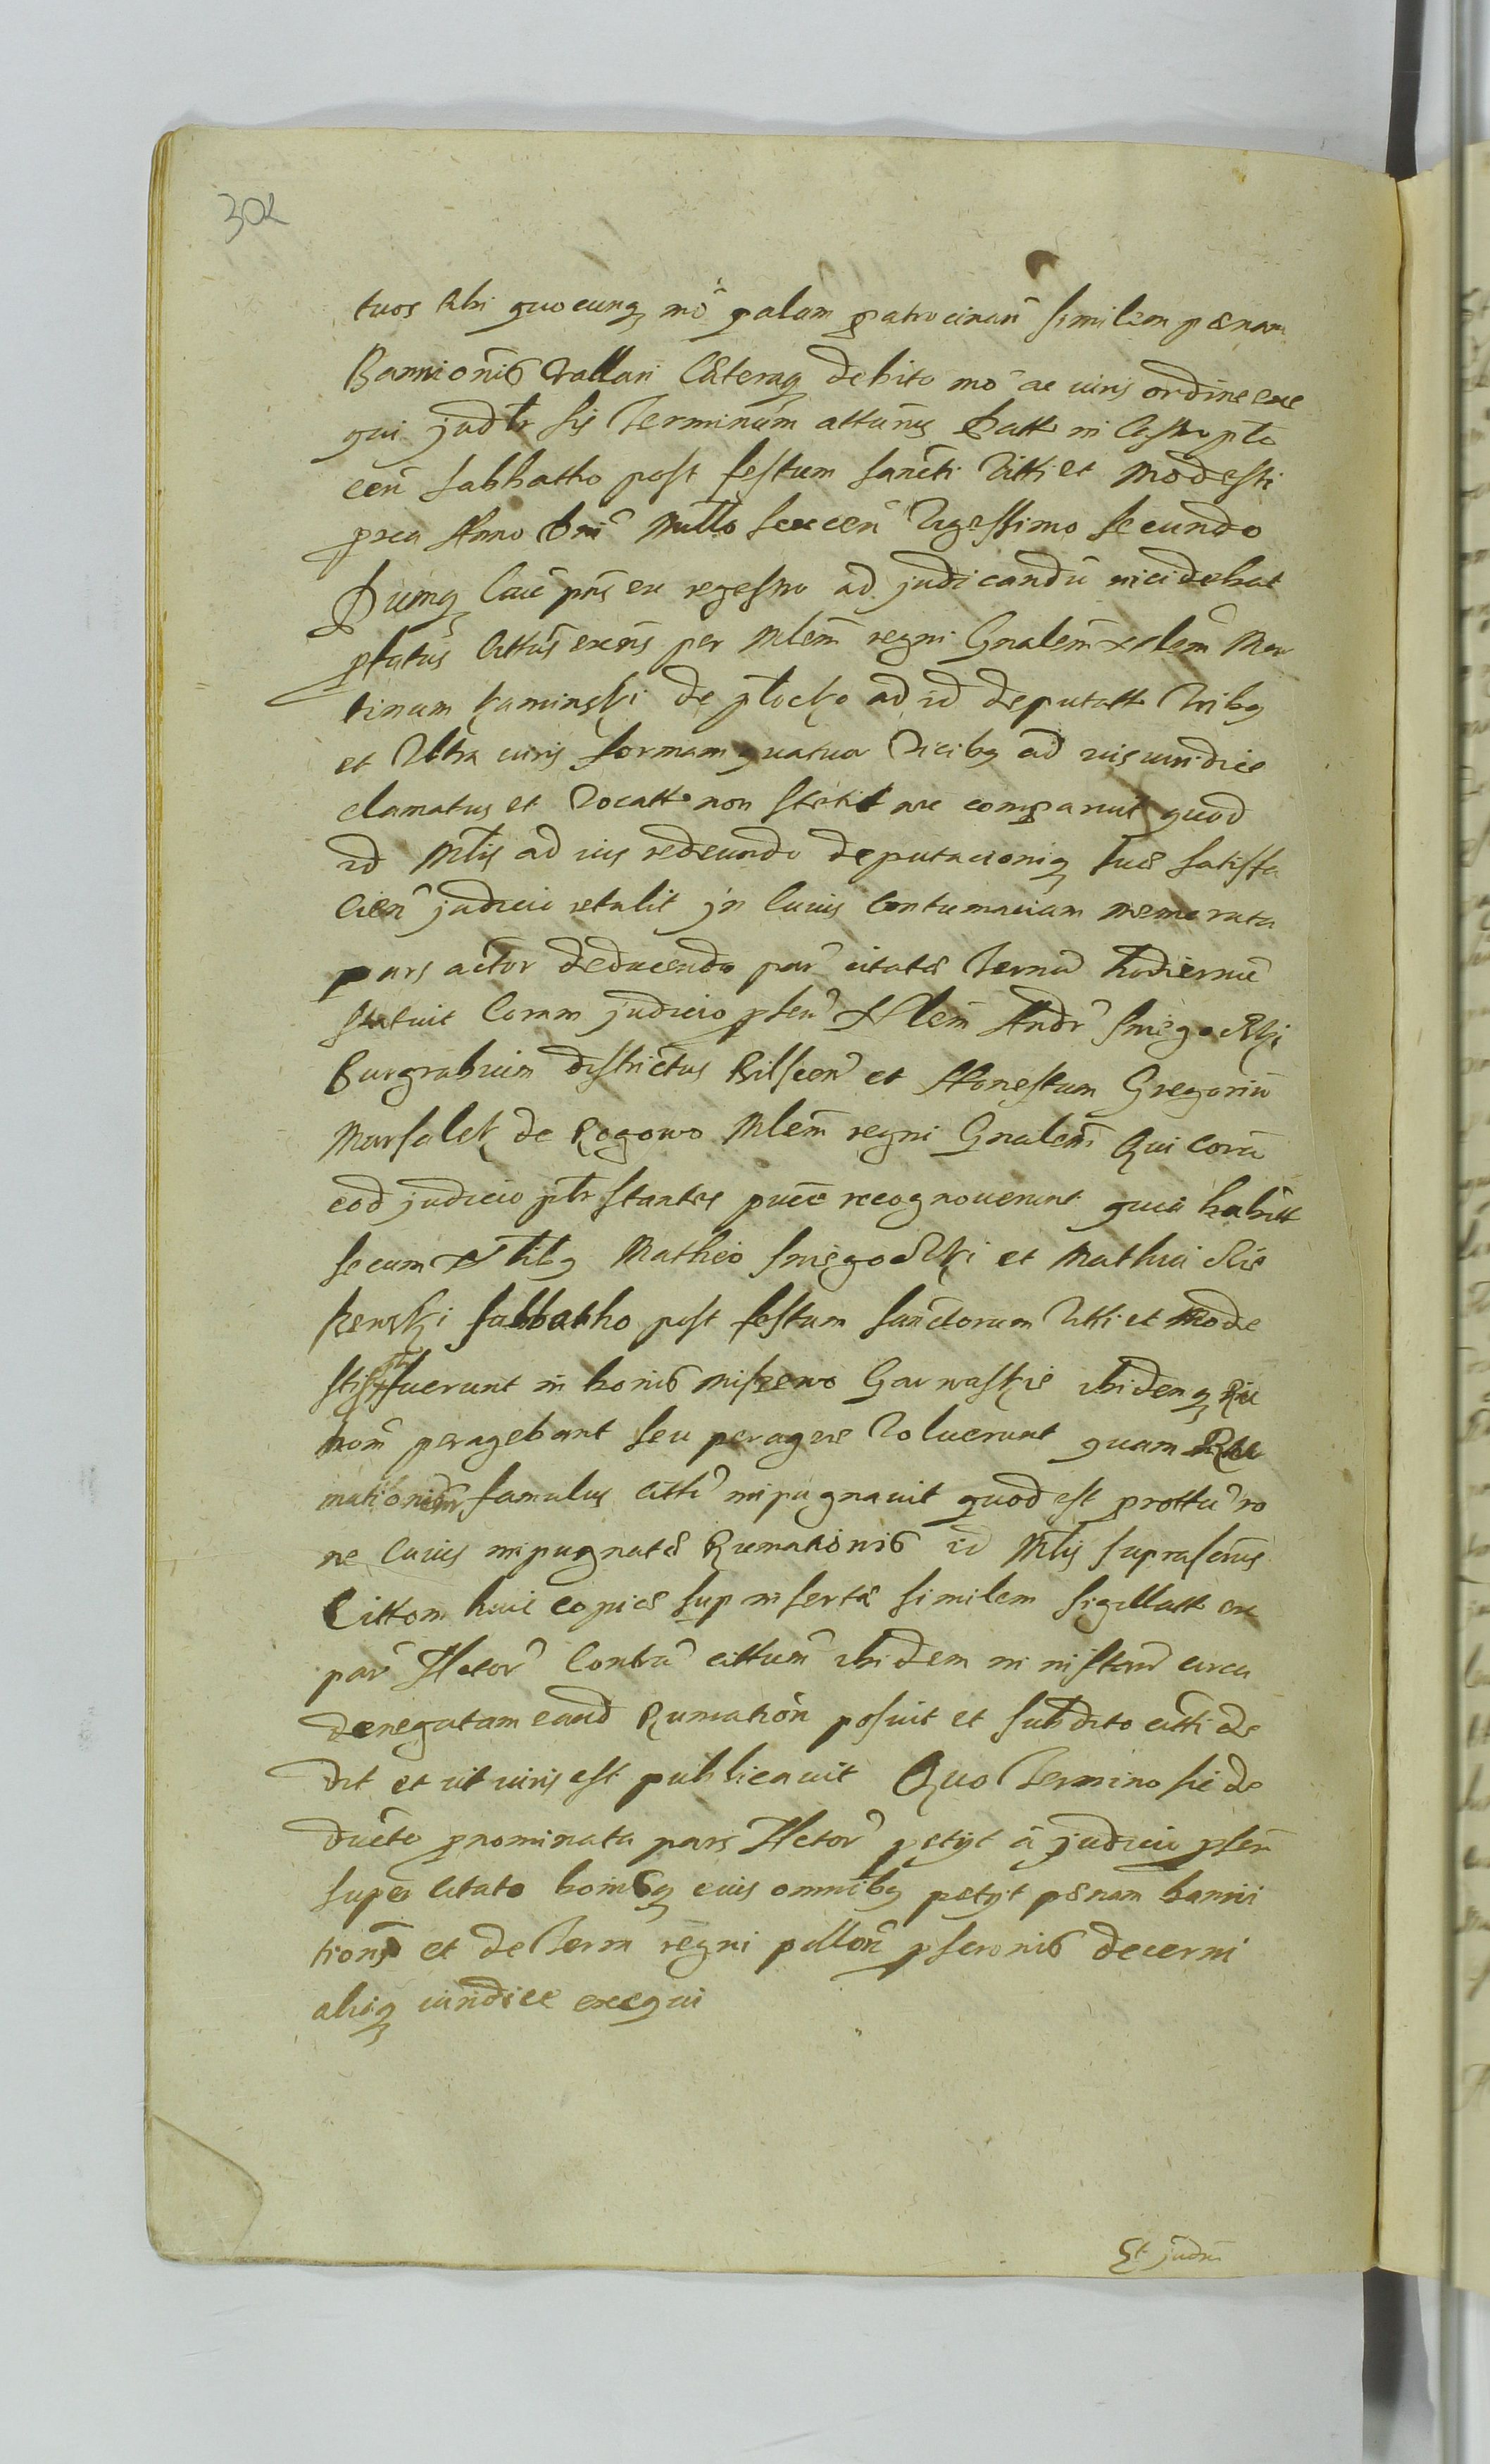 302
tuos tibi quocunq mo palam patrocinari similem pænam
Bannionis vallari Cæteraq debito mo ac iuris ordine exe
qui judtr sis Terminum attunus Datt in Castro plo
cen Sabbatho post festum Sancti Viti et Modesti
prea Anno Dni Millo Sexcen Vigessimo Secundo
Dumq Cau pns ex regestro ad judicandu incidebat
pfatus Cittus extns per Mlem regni Gnalem Nlem Mar
tinum Kaminski de plocko ad id deputatt Tribq
et Ultra iuris formam quatuor Vicibq ad ius iuridice
clamatus et vocatt non stetit nec comparuit quod
id Mtlis ad ius redeundo deputacioniq suæ satisfa
cien judicio retulit jn Cuius Contumaciam memorata
pars actor deducendo par citatæ Termu hodiernu
statuit Coram judicio psen Nlem Andr Sniegocki
Burgrabium districtus Bilscen et Honestum Gregoriu
Marsalek de Rogowo Mlem regni Gnalem Qui cora
eod judicio pltr stantes puce recognoverunt quia habitt
secum Nlibq Matheo Sniegocki et Mathia Sie
rzewski Sabbatho post festum Sanctorum Viti et Mode
sti fuerunt in bonis Miszewo Garwaskie ibidemq Ru
nom peragebant seu peragere voluerunt quam Ru
mationem famulus citti inpugnavit quod est prottu ro
ne Cuius inpugnatæ Rumationis id Mtlis suprascrus
Cittom huic copiæ sup insertæ similem sigillatt ex
par Actor Contra cittum ibidem in instan circa
denegatam eand Rumation posuit et subdito citti de
dit et uti iuris est publicavit Quo Termino sic de
ducto pnominata pars Actor petyt a judicio psen
super Citato bonisq eius omnibq petyt pænam banni
tionis et de Terra regni pollon psctonis decerni
aliaq iuridice exequi
Et judm